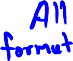 All
format